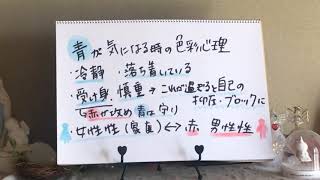 青が気になる時の色彩心理
・冷静 ・落ち着いている
・受け身 慎重 → これが過ぎると自己の
赤が攻め 青は守り 抑圧・ブロックに
・女性性(家直) ↔ 赤 男性性